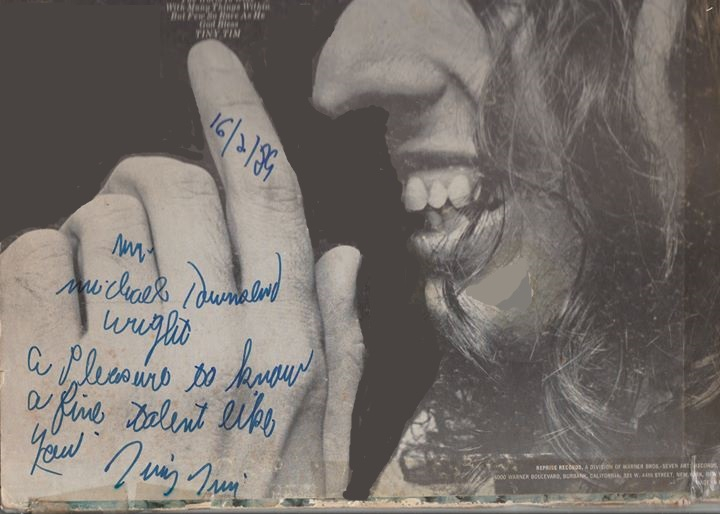 With Many Things Within
But Few So Rare As He
God Bless
TINY TIM
16/2/89
mr.
michael Townsend
wright
a pleasure to know
a fine talent like
you.
Tiny Tim
REPRISE RECORDS, A DIVISION OF WARNER BROS.-SEVEN ARTS RECORDS,
4000 WARNER BOULEVARD, BURBANK, CALIFORNIA, 321 W. 44TH STREET, NEW YORK, NEW
MADE IN